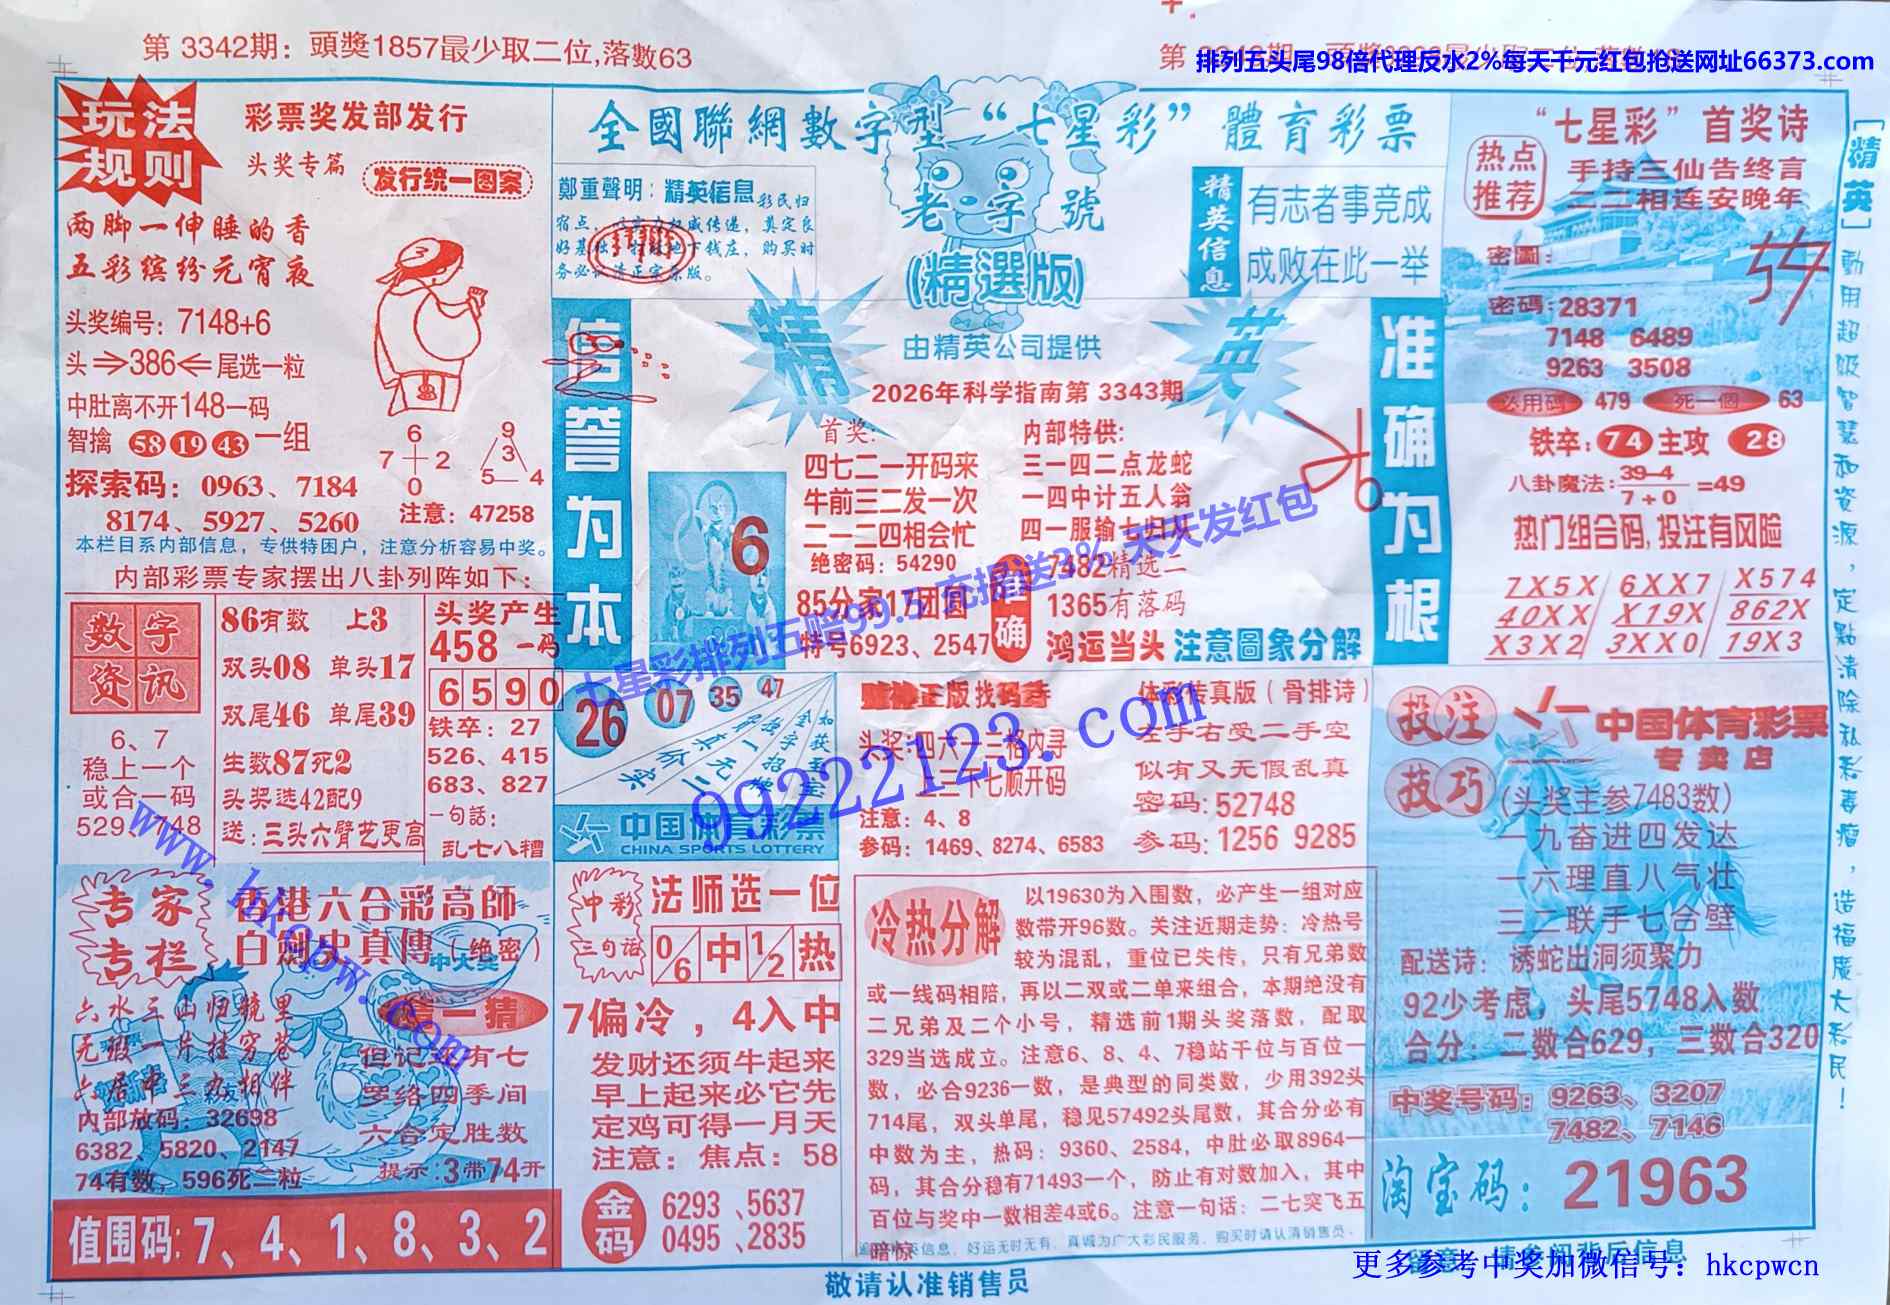 第 3342期：頭獎1857最少取二位,落數63
排列五头尾98倍代理反水2%每天千元红包抢送网址66373.com
玩法规则
彩票奖发部发行
头奖专篇
发行统一图案
两脚一伸睡的香
五彩缤纷元宵夜
头奖编号：7148+6
头⇒386⇐尾选一粒
中肚离不开148一码
智擒 58 19 43 一组
6
7 2
0
9
3
5 4
探索码：0963、7184
8174、5927、5260
注意：47258
本栏目系内部信息，专供特困户，注意分析容易中奖。
内部彩票专家摆出八卦列阵如下：
数字资讯
6、7
稳上一个
或合一码
529、748
86有数 上3
双头08 单头17
双尾46 单尾39
生数87死2
头奖选42配9
送：三头六臂艺更高
头奖产生
458 一码
6590
铁卒：27
526、415
683、827
一句話：
乱七八糟
专家专栏
香港六合彩高師
白劍史真傳（绝密）
中大奖
六水三山归镜里
无假一片挂穷苍
内部放码：32698
6382、5820、2147
74有数，596死二粒
一猜
六合定胜数
提示：3带74开
值围码：7、4、1、8、3、2
全國聯網數字型“七星彩”體育彩票
鄭重聲明：精英信息
老字號
(精選版)
由精英公司提供
精英信息
有志者事竞成
成败在此一举
信誉为本
精英
准确为根
2026年科学指南第 3343期
首奖:
四七二一开码来
牛前三二发一次
二一二四相会忙
绝密码：54290
85分家17团圆
特号6923、2547
6
内部特供:
三一四二点龙蛇
一四中计五人翁
四一服输七归双
7482精选二
1365有落码
准确
鸿运当头 注意圖象分解
七星彩排列五赔99.5 充提送3% 天天发红包
26 07 35 47
如获至宝
中国体育彩票
CHINA SPORTS LOTTERY
赌神正版找码诗
头奖:四六一三格内寻
二三下七顺开码
注意：4、8
参码：1469、8274、6583
体彩传真版（骨排诗）
左手右受二手空
似有又无假乱真
密码：52748
参码：1256 9285
99222123.com
www.hkcpw.com
中彩三句话
法师选一位
0/6 中 1/2 热
7偏冷，4入中
发财还须牛起来
早上起来必它先
定鸡可得一月天
注意：焦点：58
金码
6293、5637
0495、2835
冷热分解
以19630为入围数，必产生一组对应
数带开96数。关注近期走势：冷热号
较为混乱，重位已失传，只有兄弟数
或一线码相陪，再以二双或二单来组合，本期绝没有
二兄弟及二个小号，精选前1期头奖落数，配取
329当选成立。注意6、8、4、7稳站千位与百位一
数，必合9236一数，是典型的同类数，少用392头
714尾，双头单尾，稳见57492头尾数，其合分必有
中数为主，热码：9360、2584，中肚必取8964一
码，其合分稳有71493一个，防止有对数加入，其中
百位与奖中一数相差4或6。注意一句话：二七突飞五
暗惊
敬请认准销售员
“七星彩”首奖诗
热点推荐
手持三仙告终言
二二相连安晚年
密圖：
密码：28371
7148 6489
9263 3508
必用码 479 死一個 63
铁卒：74 主攻 28
八卦魔法：39-4/7+0=49
热门组合码,投注有风险
7X5X 6XX7 X574
40XX X19X 862X
X3X2 3XX0 19X3
投注技巧
中国体育彩票
专卖店
(头奖主参7483数)
一九奋进四发达
一六理直八气壮
三二联手七合壁
配送诗：诱蛇出洞须聚力
92少考虑，头尾5748入数
合分：二数合629，三数合320
中奖号码：9263、3207
7482、7146
淘宝码：21963
更多参考中奖加微信号：hkcpwcn
[精英]動用超级智慧和资源，定點清除私彩毒瘤，造福廣大彩民！